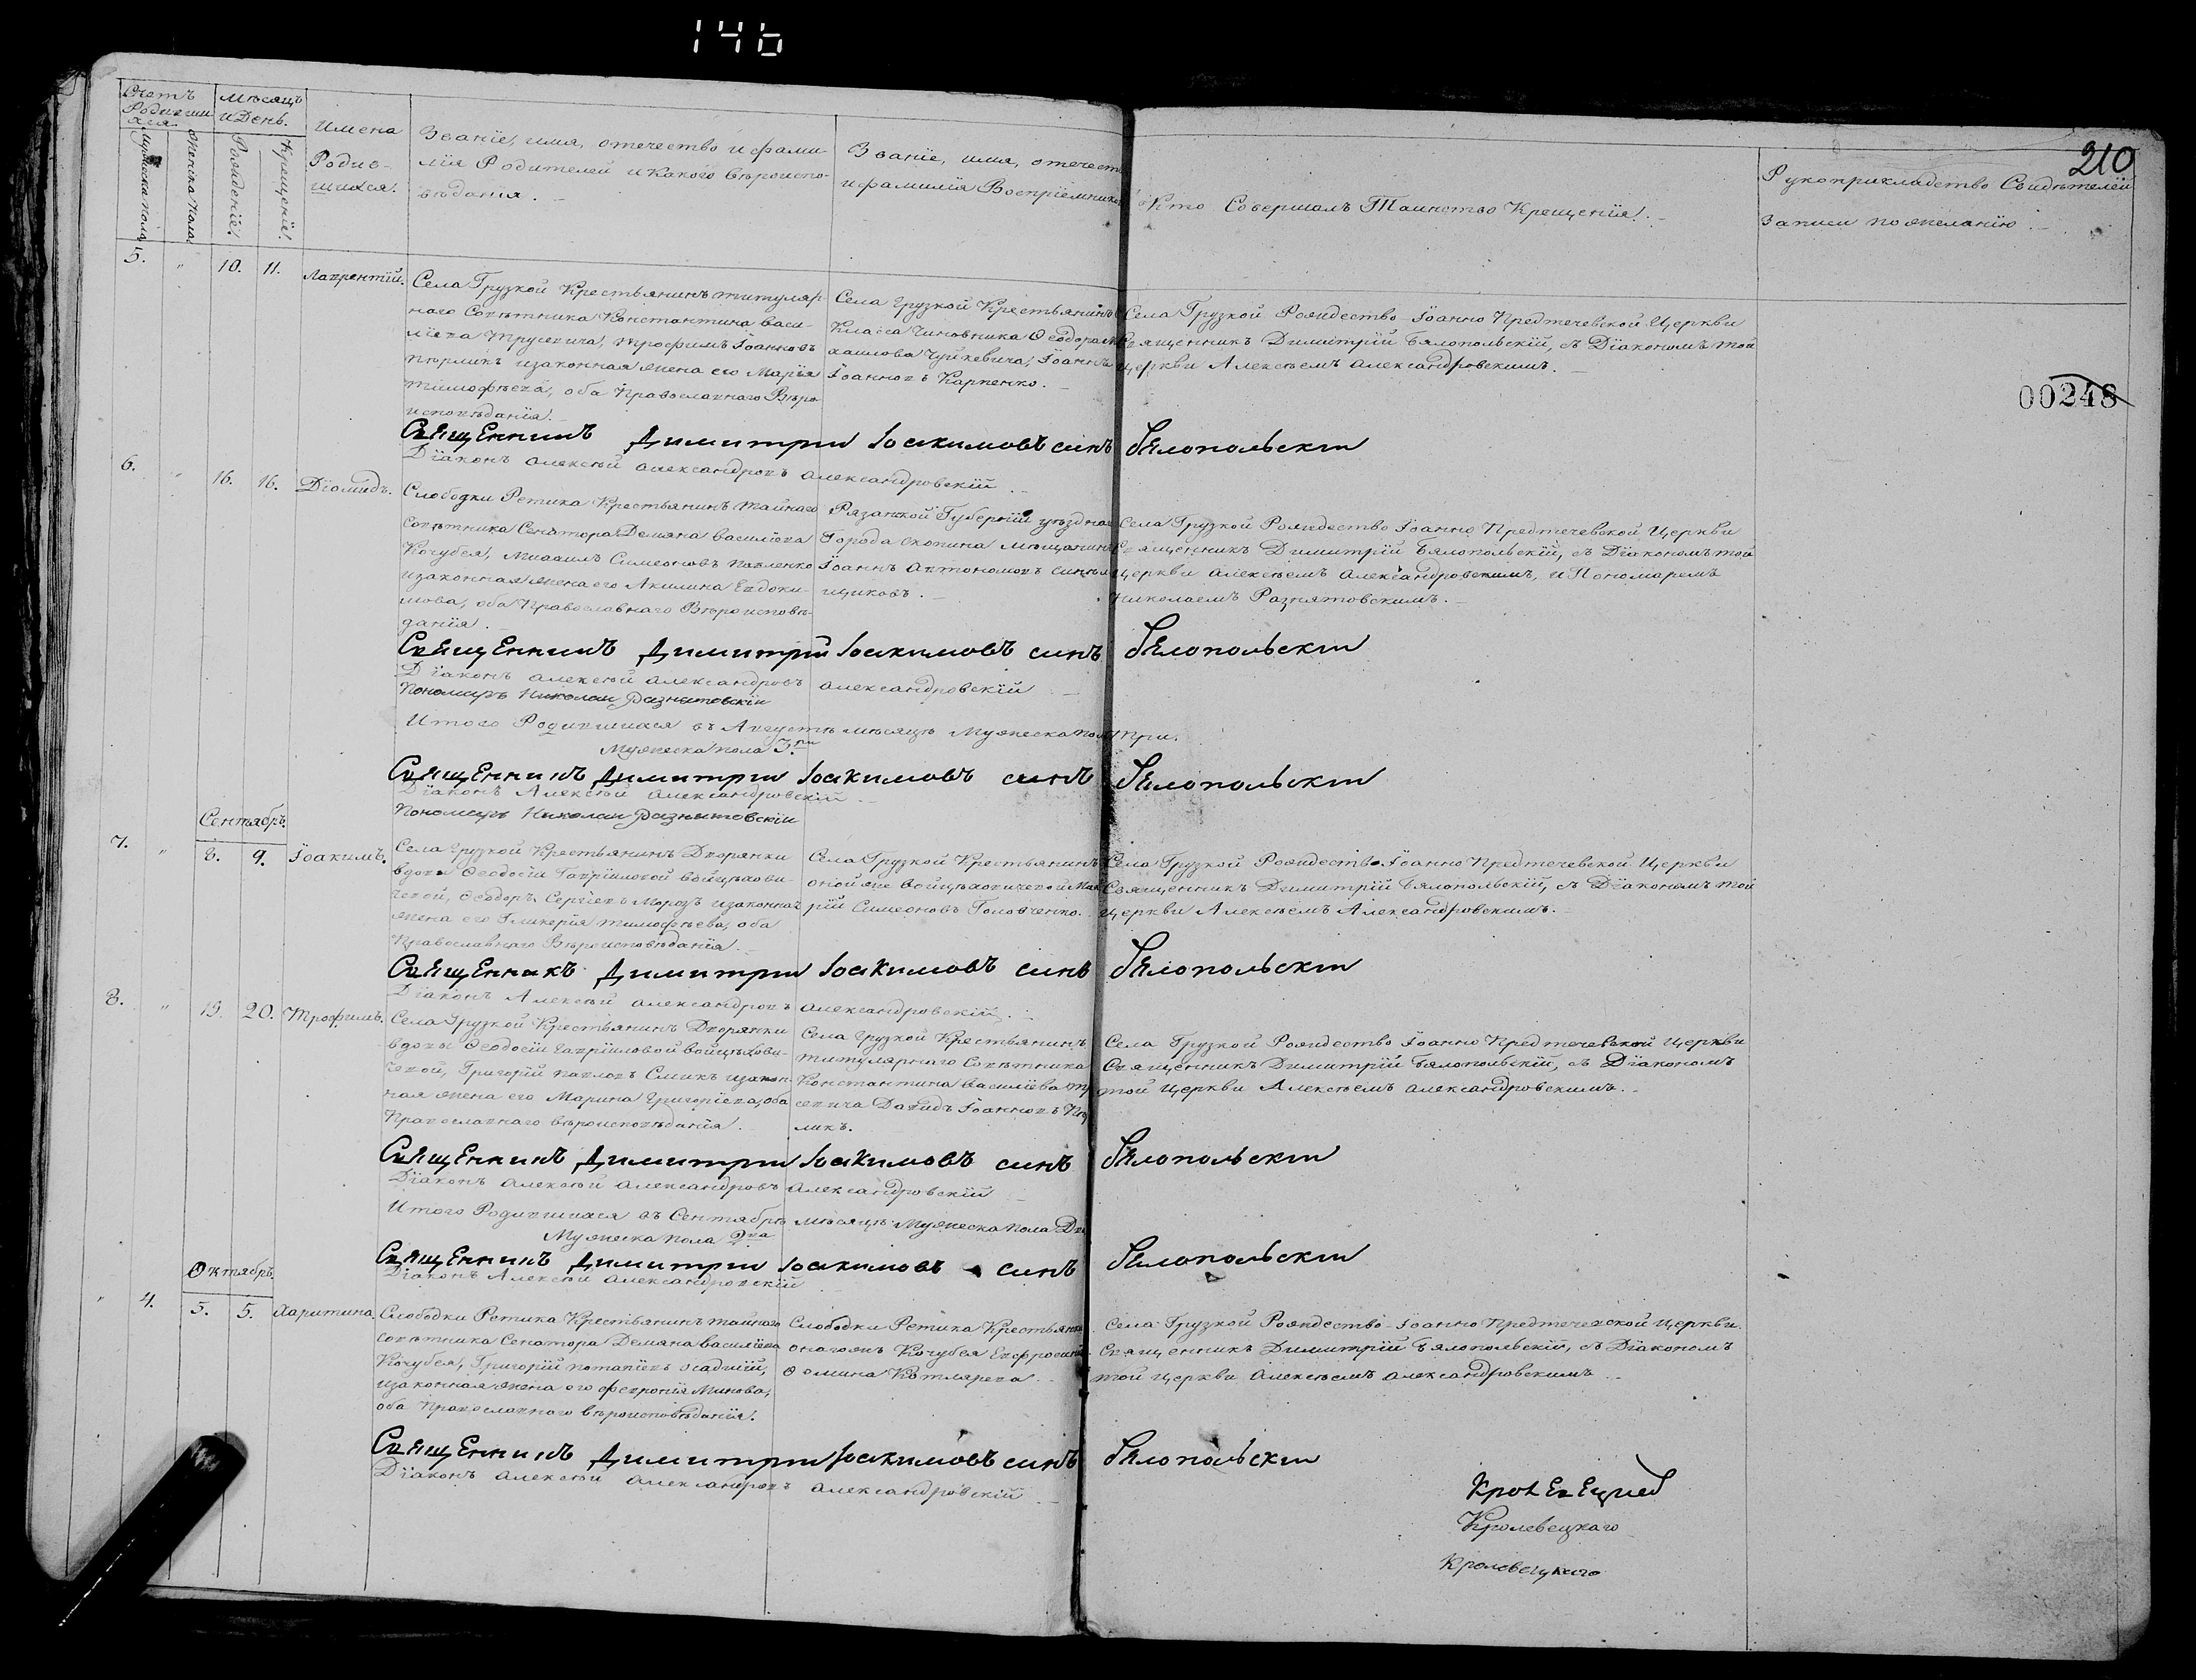 146
210
00248
Счетъ Родившихся.
Мужеска пола
Женска пола
Мѣсяцъ и День.
Рожденіе.
Крещеніе.
Имена Родившихся.
Званіе, имя, отечество и фамилія Родителей и какого вѣроисповѣданія.
Званіе, имя, отечест
и фамилія Воспріемнико
Кто Совершалъ Таинство Крещенія.
Рукоприкладство Свидѣтелей
Записи по желанію.
5. " 10. 11. Лаврентій.
Села Грузкой Крестьянинъ титуляр-
наго Совѣтника Константина Васи-
лева Трусевича, Трофимъ Іоанновъ
изаконная жена его Марія
Тимофѣева, оба Православнаго Вѣро-
исповѣданія.
Села Грузкой Крестьянинъ
Класса Чиновника Ѳеодора Ми
хаилова Чуйкевича, Іоаннъ
Іоанновъ Карпенко.
Села Грузкой Рождество-Іоанно Предтечевской Церкви
Священникъ Димитрій Бялопольскій, съ Діакономъ той
церкви Алексѣемъ Александровскимъ.
Священникъ Димитрий Іоакимовъ синъ Бялопольский
Діаконъ Алексѣй Александровъ Александровскій.
6. " 16. 16. Діомидъ.
Слободки Ретика Крестьянинъ Тайнаго
Совѣтника Сенатора Демяна Василіева
Кочубея, Михаилъ Симеоновъ Павленко
изаконная жена его Акилина Евдоки-
мова, оба Православнаго Вѣроисповѣ-
данія.
Рязанской Губерніи уѣзднаго
Города Скопина Мѣщанинъ
Іоаннъ Автономовъ синъ
щиковъ.
Села Грузкой Рождество Іоанно Предтечевской Церкви
Священникъ Димитрій Бялопольскій, съ Діакономъ той
церкви Алексѣемъ Александровскимъ, и Пономаремъ
Николаемъ Разнятовскимъ.
Священникъ Димитрий Іоакимовъ синъ Бялопольский
Діаконъ Алексѣй Александровъ Александровскій
Пономарь Николай Разнатовскій
Итого Родившихся въ Августѣ мѣсяцѣ Мужеска пола три.
Мужеска пола 3.
Священникъ Димитрий Іоакимовъ синъ Бялопольский
Діаконъ Алексѣй Александровскій
Пономарь Николай Разнатовскій
Сентябрь.
7. " 8. 9. Іоакимъ.
Села Грузкой Крестьянинъ Дворянки
вдовы Ѳеодосіи Гавріиловой Войцѣхови-
чевой, Ѳеодоръ Сергіевъ Морозъ изаконная
жена его Гликерія Тимофѣева, оба
Православнаго Вѣроисповѣданія.
Села Грузкой Крестьянинъ
оной же Войцѣховичевой Мака
рій Симеоновъ Головченко.
Села Грузкой Рождество-Іоанно Предтечевской Церкви
Священникъ Димитрій Бялопольскій, съ Діакономъ той
церкви Алексѣемъ Александровскимъ.
Священникъ Димитрий Іоакимовъ синъ Бялопольский
Діаконъ Алексѣй Александровъ Александровскій.
8. " 19. 20. Трофимъ.
Села Грузкой Крестьянинъ Дворянки
вдовы Ѳеодосіи Гавріиловой Войцѣхови-
чевой, Григорій Павловъ Смикъ изакон-
ная жена его Марина Григоріева, оба
Православнаго вѣроисповѣданія.
Села Грузкой Крестьянинъ
титулярнаго Совѣтника
Константина Василіева Тру
севича Давидъ Іоанновъ
ликъ.
Села Грузкой Рождество Іоанно Предтечевской Церкви
Священникъ Димитрій Бялопольскій, съ Діакономъ
той церкви Алексѣемъ Александровскимъ.
Священникъ Димитрий Іоакимовъ синъ Бялопольский
Діаконъ Алексѣй Александровъ Александровскій
Итого Родившихся въ Сентябрѣ мѣсяцѣ Мужеска пола Два
Мужеска пола 2ва
Священникъ Димитрий Іоакимовъ синъ Бялопольский
Діаконъ Алексѣй Александровскій
Октябрь.
" 4. 5. 5. Харитина.
Слободки Ретика Крестьянинъ тайнаго
совѣтника Сенатора Демяна Василіева
Кочубея, Григорій Потапіевъ Осадчій,
изаконная жена его Февронія Минова,
оба Православнаго вѣроисповѣданія.
Слободки Ретика Крестьянка
онагожъ Кочубея Евфросинія
Ѳомина Котлярева.
Села Грузкой Рождество-Іоанно Предтечевской Церкви.
Священникъ Димитрій Бялопольскій, съ Діакономъ
той церкви Алексѣемъ Александровскимъ.
Священникъ Димитрий Іоакимовъ синъ Бялопольский
Діаконъ Алексѣй Александровъ Александровскій
Кролевецкаго
Кролевецкаго